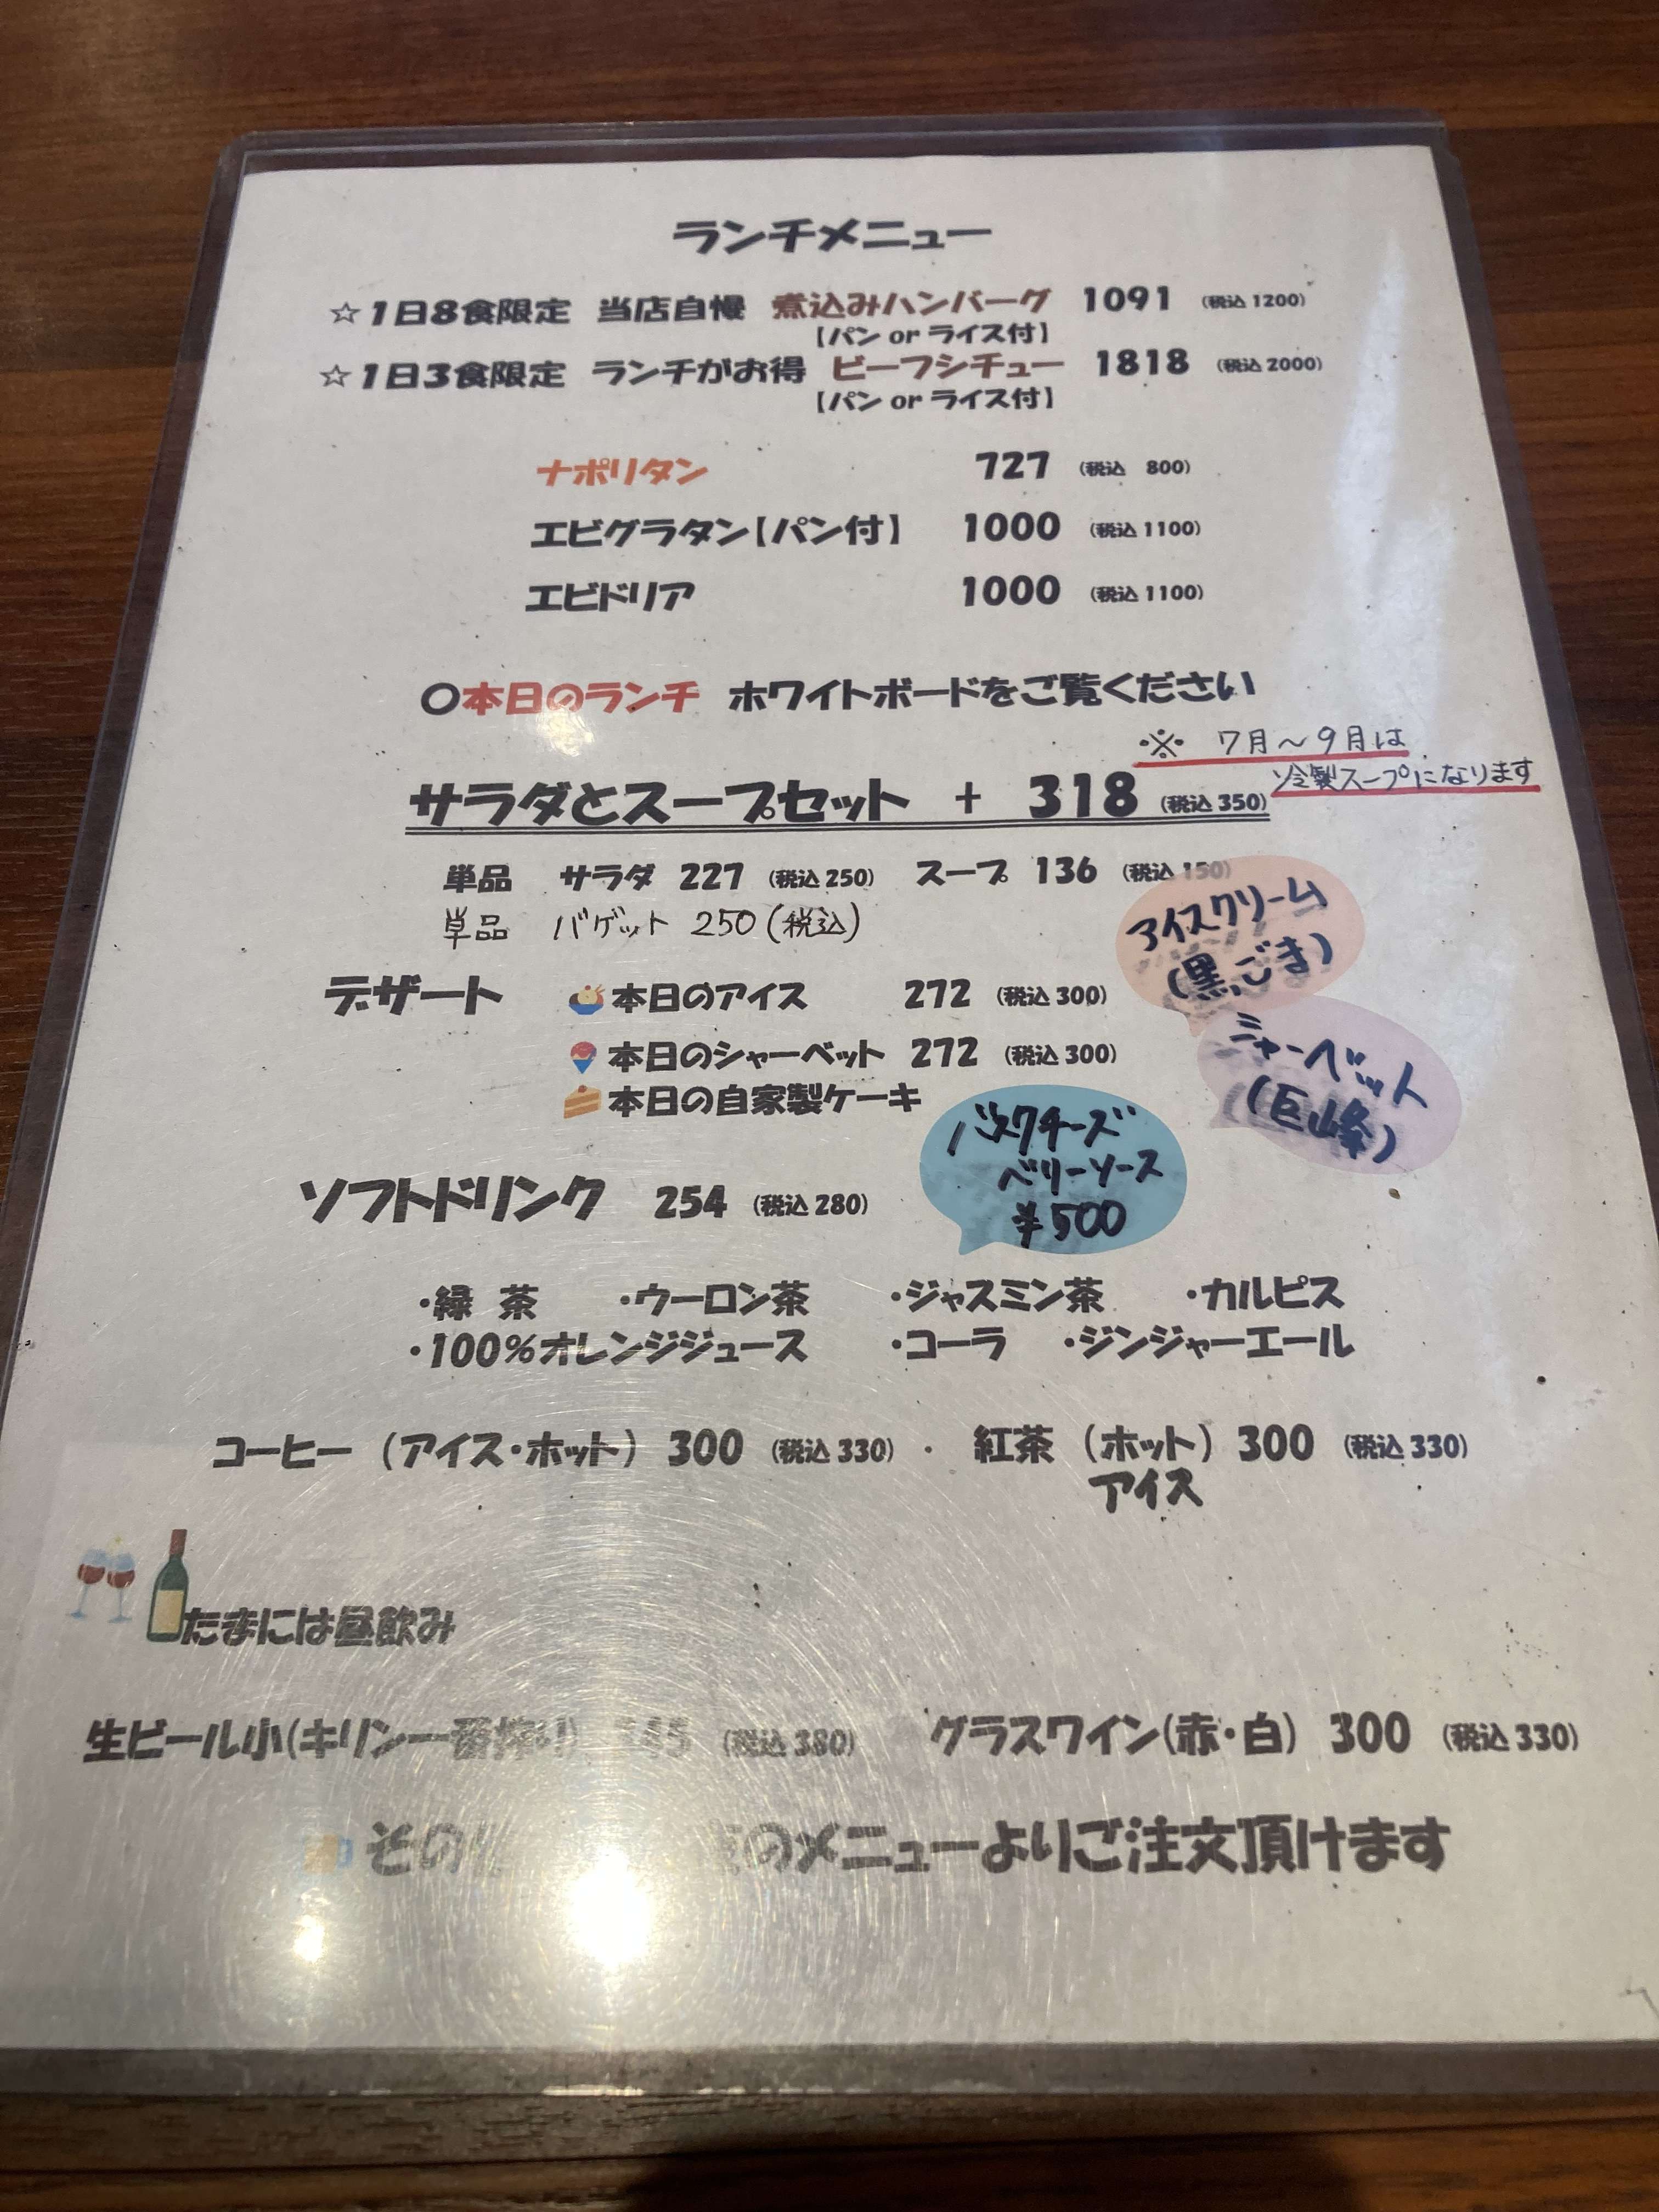 ランチメニュー
☆1日8食限定 当店自慢 煮込みハンバーグ 1091 (税込 1200)
【パン or ライス付】
☆1日3食限定 ランチがお得 ビーフシチュー 1818 (税込 2000)
【パン or ライス付】
ナポリタン 727 (税込 800)
エビグラタン【パン付】 1000 (税込 1100)
エビドリア 1000 (税込 1100)
〇本日のランチ ホワイトボードをご覧ください
※ 7月～9月は
冷製スープになります
サラダとスープセット + 318 (税込 350)
単品 サラダ 227 (税込 250) スープ 136 (税込 150)
単品 バゲット 250 (税込)
アイスクリーム
(黒ごま)
デザート 本日のアイス 272 (税込 300)
本日のシャーベット 272 (税込 300)
シャーベット
(巨峰)
本日の自家製ケーキ
バスクチーズ
ベリーソース
¥500
ソフトドリンク 254 (税込 280)
・緑 茶 ・ウーロン茶 ・ジャスミン茶 ・カルピス
・100%オレンジジュース ・コーラ ・ジンジャーエール
コーヒー (アイス・ホット) 300 (税込 330) ・ 紅茶 (ホット) 300 (税込 330)
アイス
たまには昼飲み
生ビール小(キリン一番搾り) (税込 380) グラスワイン(赤・白) 300 (税込 330)
その のメニューよりご注文頂けます